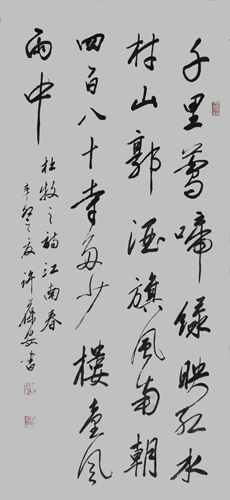 千里莺啼绿映红水
村山郭酒旗风南朝
四百八十寺多少楼台风
雨中
杜牧之诗江南春
辛卯之夏许安书